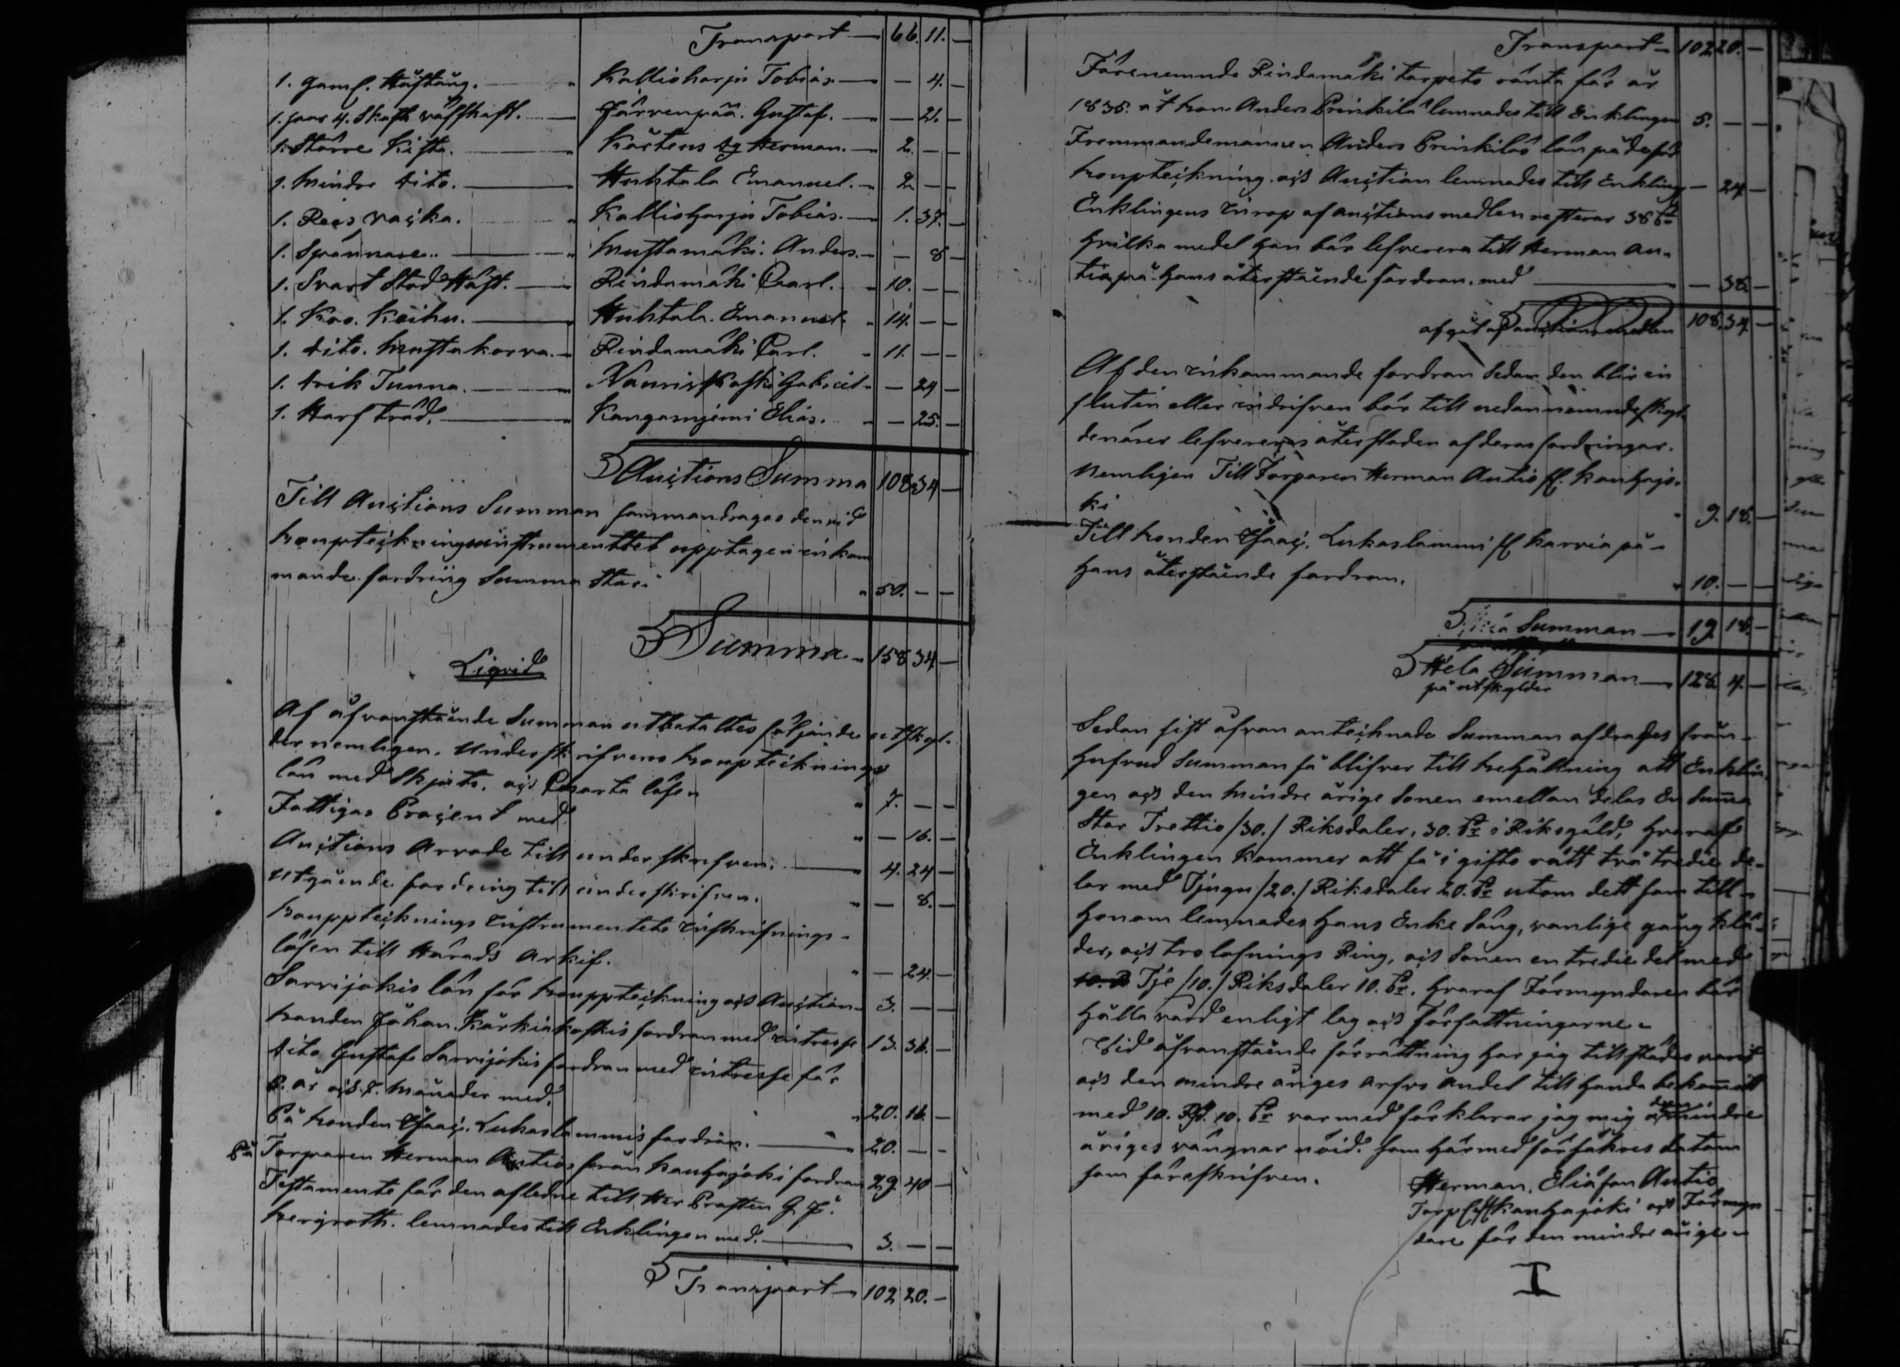 Transport — 66. 11. —
1. Gaml. Häftäng. — Kallioharju Tobias — — 4. —
1. paar 4. Skaft väfskaft. — Järvenpää Gustaf. — — 21. —
1. Större Kista. — Kärtens Herman. — 2. — —
1. Mindre dito. — Huhtala Emanuel. — 2. — —
1. Reesväska. — Kallioharju Tobias. — 1. 37. —
1. Spännare. — Mustamäki Anders. — — 8 —
1. Svart Stod Häst. — Rindamäki Carl. — 10. — —
1. Koo. Köihu. — Huhtala. Emanuel. — 14. — —
1. dito. Mustakorva. — Rindamäki Carl. — 11. — —
1. drik Tunna. — Nauriskoski Gabriel — — 24 —
1. Harf träd. — Kangasnjemi Elias. — — 25. —
Auctions Summa 108 34 —
Till Auctions Summan sammandrages den vid
bouptekningsinstrumenttet upptagen inkom
mande fordring Summa Stor 50. — —
Summa — 158 34 —
Liqvid
Af åfvanstående Summan utbetaltes följande utskyl-
der nemligen. Underskrifvens bouptecknings
lön med Skjuts. och Charta lösen 7. — —
Fattigas Procent med — 16. —
Auctions Arvode till underskrifven. — 4. 24 —
Utgående fordring till underskrifven. — 8. —
bouppteknings instrumentets inskrifnings-
lösen till Härads Arkif. — 24. —
Sarvijokis lön för bouppteckning och Auction 3. — —
bonden Johan Kärkiakoskis fordran med intresse 13. 36. —
dito Gustafs Sarvijokis fordran med intresse för
8. år och 8. månader med. 20. 16. —
På bonden Isaac. Lukaslammis fordran. — 20. — —
På Torparen Herman Antios från kauhajoki fordran 29 40 —
Testamente för den afledne till Her Prosten G. J.
Bergroth. lemnades till Enklingen med. — 3. — —
Transport — 102 20. —
Transport — 102 20. —
Förenemnde Rindamäki torpets ränta för år
1835. åt bon. Anders Prinkilä lemnades till Enklingen 5. — —
Fremmandemannen Anders Prinkiläs lön på dess
bouptekning. och Auction lemnades till Enkling — 24 —
Enklingens inrop af auctions medlen resterar 38 sk
hvilka medel han bör lefverera till Herman An-
tio på hans återstående fordran. med — — 38 —
afgåt af auctions medlen 108. 34 —
Af den inkommande fordran sedan den blir in
fluten eller indrifven bör till nedannemnde skyl-
denärer lefvereras återstoden af deras fordringar.
Nemligen Till Torparen Herman Antio fr. kauhajo-
ki 9. 18. —
Till bonden Isaac. Lukaslammi fr karvia på-
hans återstående fordran. 10. — —
Summan — 19 18. —
Hela Summan — 128 4. —
på utskylder
Sedan sist åfvan antecknade Summan afdrages från
hufvud Summan så blifver till behållning att Enklin-
gen och den mindre årige Sonen emellan delas En Summa
Stor Trettio /30./ Riksdaler, 30. sk i Riksgäld, hvaraf
Enklingen kommer att få i gifto rätt två tredie de-
lar med Tjugu /20./ Riksdaler 20. sk utom dett som till-
honom lemnades hans Enke Säng, vanlige gång klä-
der, och trolofnings Ring, och Sonen en tredie del med
Tje /10./ Riksdaler 10. sk. hvaraf Förmyndaren bör
hålla vård enligt lag och författningarne.
Vid åfvanstående förrättning har jag tillstädes varit
och den mindre åriges arfvs andel till handa bekommit
med 10. Rd. 10. sk varmed förklarar jag mig å den mindre
åriges vängnar nöid. som härmed försäkres datum
som föreskrifven.
Herman. Eliäson Antio
Torp fr kauhajoki och Förmyn
dare för den mindre årige